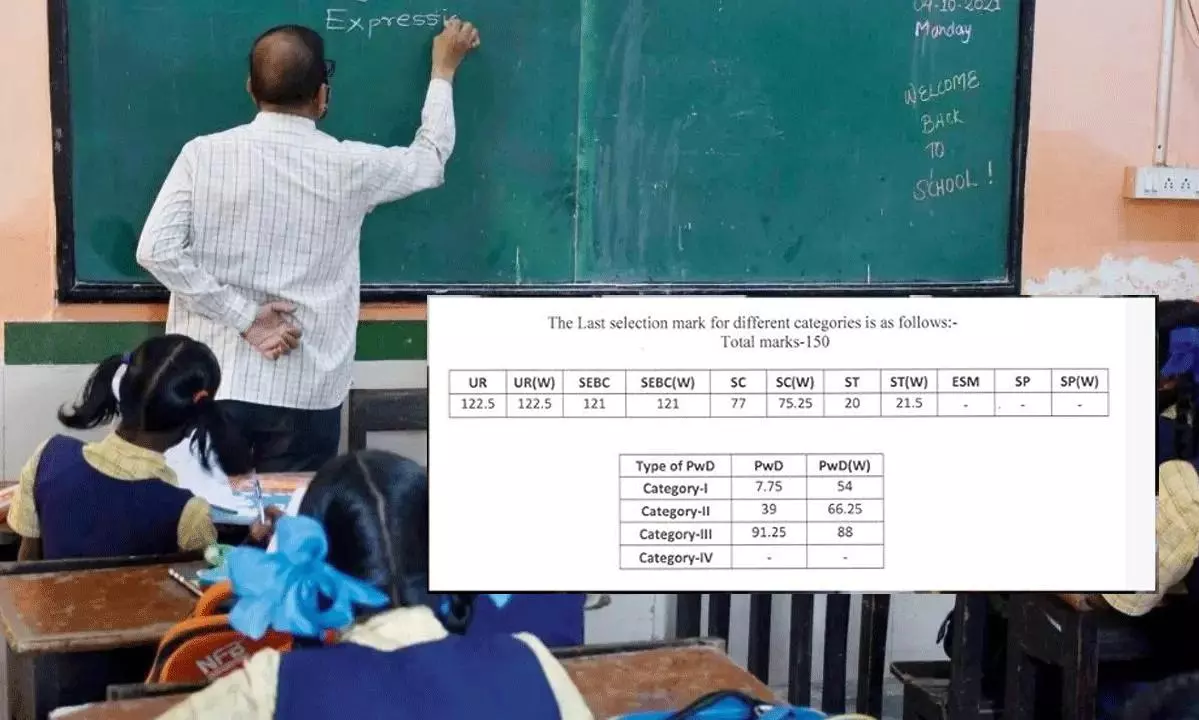 Expressi
04-10-2021
Monday
WELCOME
BACK
TO
SCHOOL !
The Last selection mark for different categories is as follows:-
Total marks-150
UR UR(W) SEBC SEBC(W) SC SC(W) ST ST(W) ESM SP SP(W)
122.5 122.5 121 121 77 75.25 20 21.5 - - -
Type of PwD PwD PwD(W)
Category-I 7.75 54
Category-II 39 66.25
Category-III 91.25 88
Category-IV - -